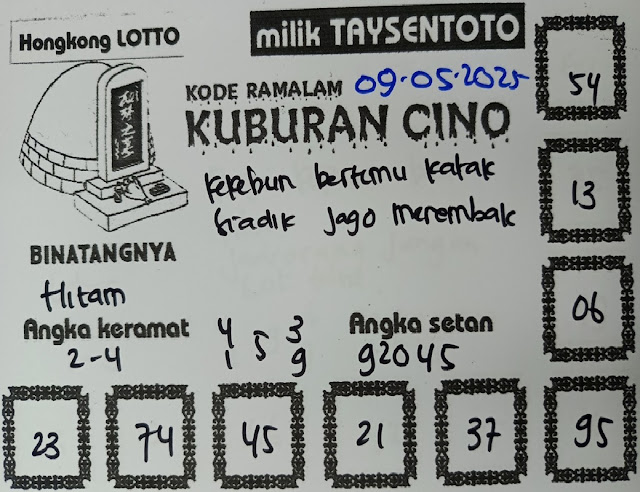 Hongkong LOTTO
milik TAYSENTOTO
KODE RAMALAM 09-05-2025
KUBURAN CINO
kekebun bertemu katak
sradik jago merembak
BINATANGNYA
Hitam
Angka keramat
2-4
4 3
5
1 9
Angka setan
92045
54
13
06
23 74 45 21 37 95